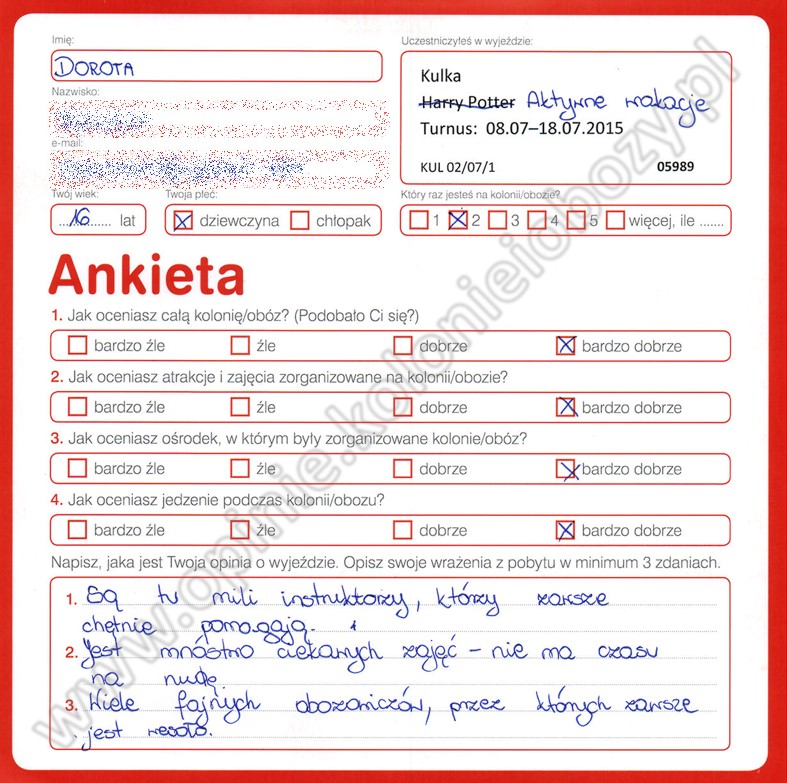 Imię:
DOROTA
Nazwisko:
e-mail:
Twój wiek:
16 lat
Twoja płeć:
dziewczyna chłopak
Uczestniczyłeś w wyjeździe:
Kulka
Harry Potter Aktywne wakacje
Turnus: 08.07–18.07.2015
KUL 02/07/1 05989
Który raz jesteś na kolonii/obozie?
1 2 3 4 5 więcej, ile .......
Ankieta
1. Jak oceniasz całą kolonię/obóz? (Podobało Ci się?)
bardzo źle źle dobrze bardzo dobrze
2. Jak oceniasz atrakcje i zajęcia zorganizowane na kolonii/obozie?
bardzo źle źle dobrze bardzo dobrze
3. Jak oceniasz ośrodek, w którym były zorganizowane kolonie/obóz?
bardzo źle źle dobrze bardzo dobrze
4. Jak oceniasz jedzenie podczas kolonii/obozu?
bardzo źle źle dobrze bardzo dobrze
Napisz, jaka jest Twoja opinia o wyjeździe. Opisz swoje wrażenia z pobytu w minimum 3 zdaniach.
1. Są tu mili instruktorzy, którzy zawsze
chętnie pomagają.
2. Jest mnóstwo ciekawych zajęć – nie ma czasu
na nudę.
3. Wiele fajnych obozowiczów, przez których zawsze
jest wesoło.
www.opinie.kolonieiobozy.pl